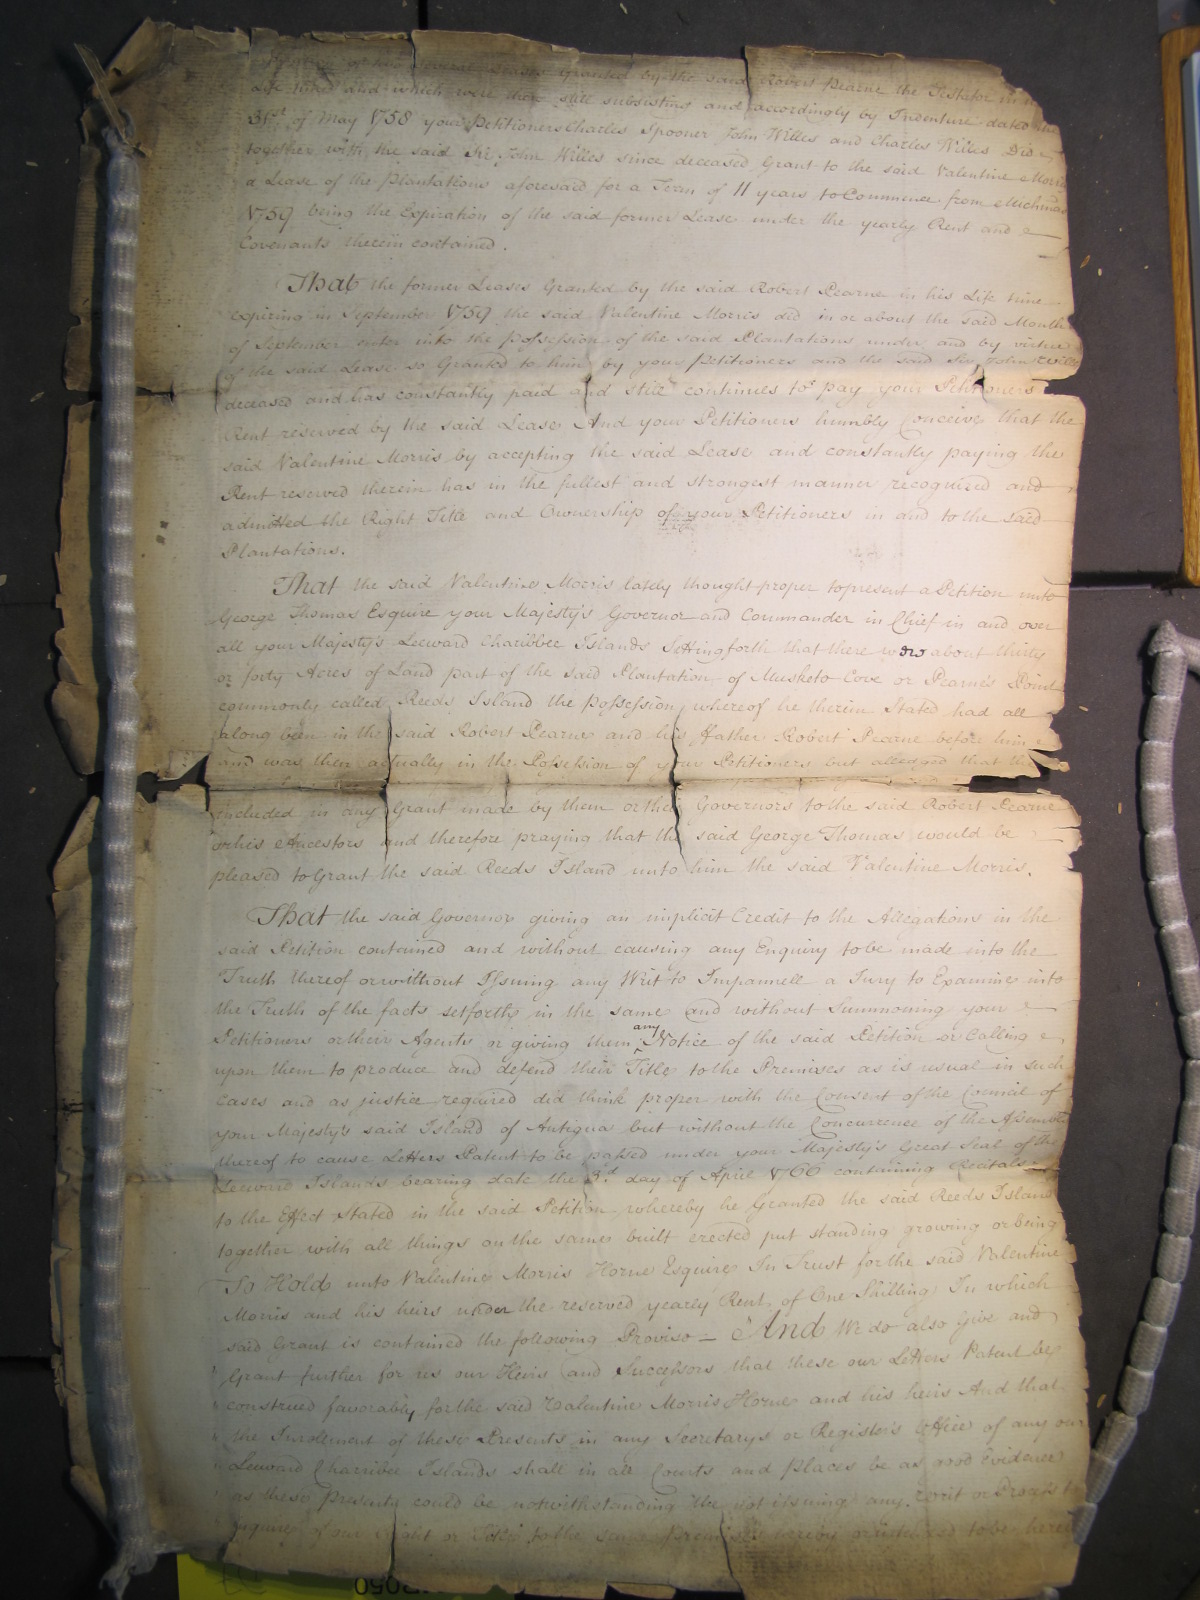 of two several Leases Granted by the said Robert Pearne the Testator in his
Life time and which were then still subsisting and accordingly by Indenture dated the
31st of May 1758 your Petitioners Charles Spooner John Willes and Charles Willes Did
together with the said Sir John Willes since deceased Grant to the said Valentine Morris
a Lease of the Plantations aforesaid for a Term of 11 years to Commence from Michmas
1759 being the Expiration of the said former Lease under the yearly Rent and
Covenants therein contained.
That the former Leases Granted by the said Robert Pearne in his Life time
expiring in September 1759 the said Valentine Morris did in or about the said Month
of September enter into the Possession of the said Plantations under and by virtue
of the said Lease so Granted to him by your Petitioners and the said Sir John Willes
deceased and has constantly paid and still continues to pay your Petitioners
Rent reserved by the said Lease And your Petitioners humbly Conceive that the
said Valentine Morris by accepting the said Lease and constantly paying the
Rent reserved therein has in the fullest and strongest manner recognized and
admitted the Right Title and Ownership of your Petitioners in and to the said
Plantations.
That the said Valentine Morris lately thought proper to present a Petition unto
George Thomas Esquire your Majesty's Governor and Commander in Chief in and over
all your Majesty's Leeward Charibbee Islands Setting forth that there was about thirty
or forty Acres of Land part of the said Plantation of Musketo Cove or Pearne's Point
commonly called Reeds Island the Possession whereof he therein Stated had all
along been in the said Robert Pearne and his Father Robert Pearne before him
and was then actually in the Possession of your Petitioners but alledged that the
included in any Grant made by them or their Governors to the said Robert Pearne
or his Ancestors and therefore praying that the said George Thomas would be
pleased to Grant the said Reeds Island unto him the said Valentine Morris.
That the said Governor giving an implicit Credit to the Allegations in the
said Petition contained and without causing any Enquiry to be made into the
Truth thereof or without Issuing any Writ to Impannell a Jury to Examine into
the Truth of the facts setforth in the same and without Summoning your
Petitioners or their Agents or giving them any Notice of the said Petition or Calling
upon them to produce and defend their Title to the Premises as is usual in such
cases and as justice required did think proper with the Consent of the Council of
your Majesty's said Island of Antigua but without the Concurrence of the Assembly
thereof to cause Letters Patent to be passed under your Majesty's Great Seal of the
Leeward Islands bearing date the 3d day of April 1760 containing Recitals
to the Effect Stated in the said Petition whereby he Granted the said Reeds Island
together with all things on the same built erected put standing growing or being
To Hold unto Valentine Morris Horne Esquire In Trust for the said Valentine
Morris and his heirs under the reserved yearly Rent of One Shilling In which
said Grant is contained the following Proviso – "And We do also Give and
" Grant further for us our Heirs and Successors that these our Letters Patent be
" construed favorably for the said Valentine Morris Horne and his heirs And that
" the Inrolement of these Presents in any Secretary's or Register's Office of any our
" Leeward Charribee Islands shall in all Courts and places be as good Evidence
" as these Presents could be notwithstanding the not issuing any Writ or Process to
" inquire of our right or Title to the same premises hereby or intended to be hereby